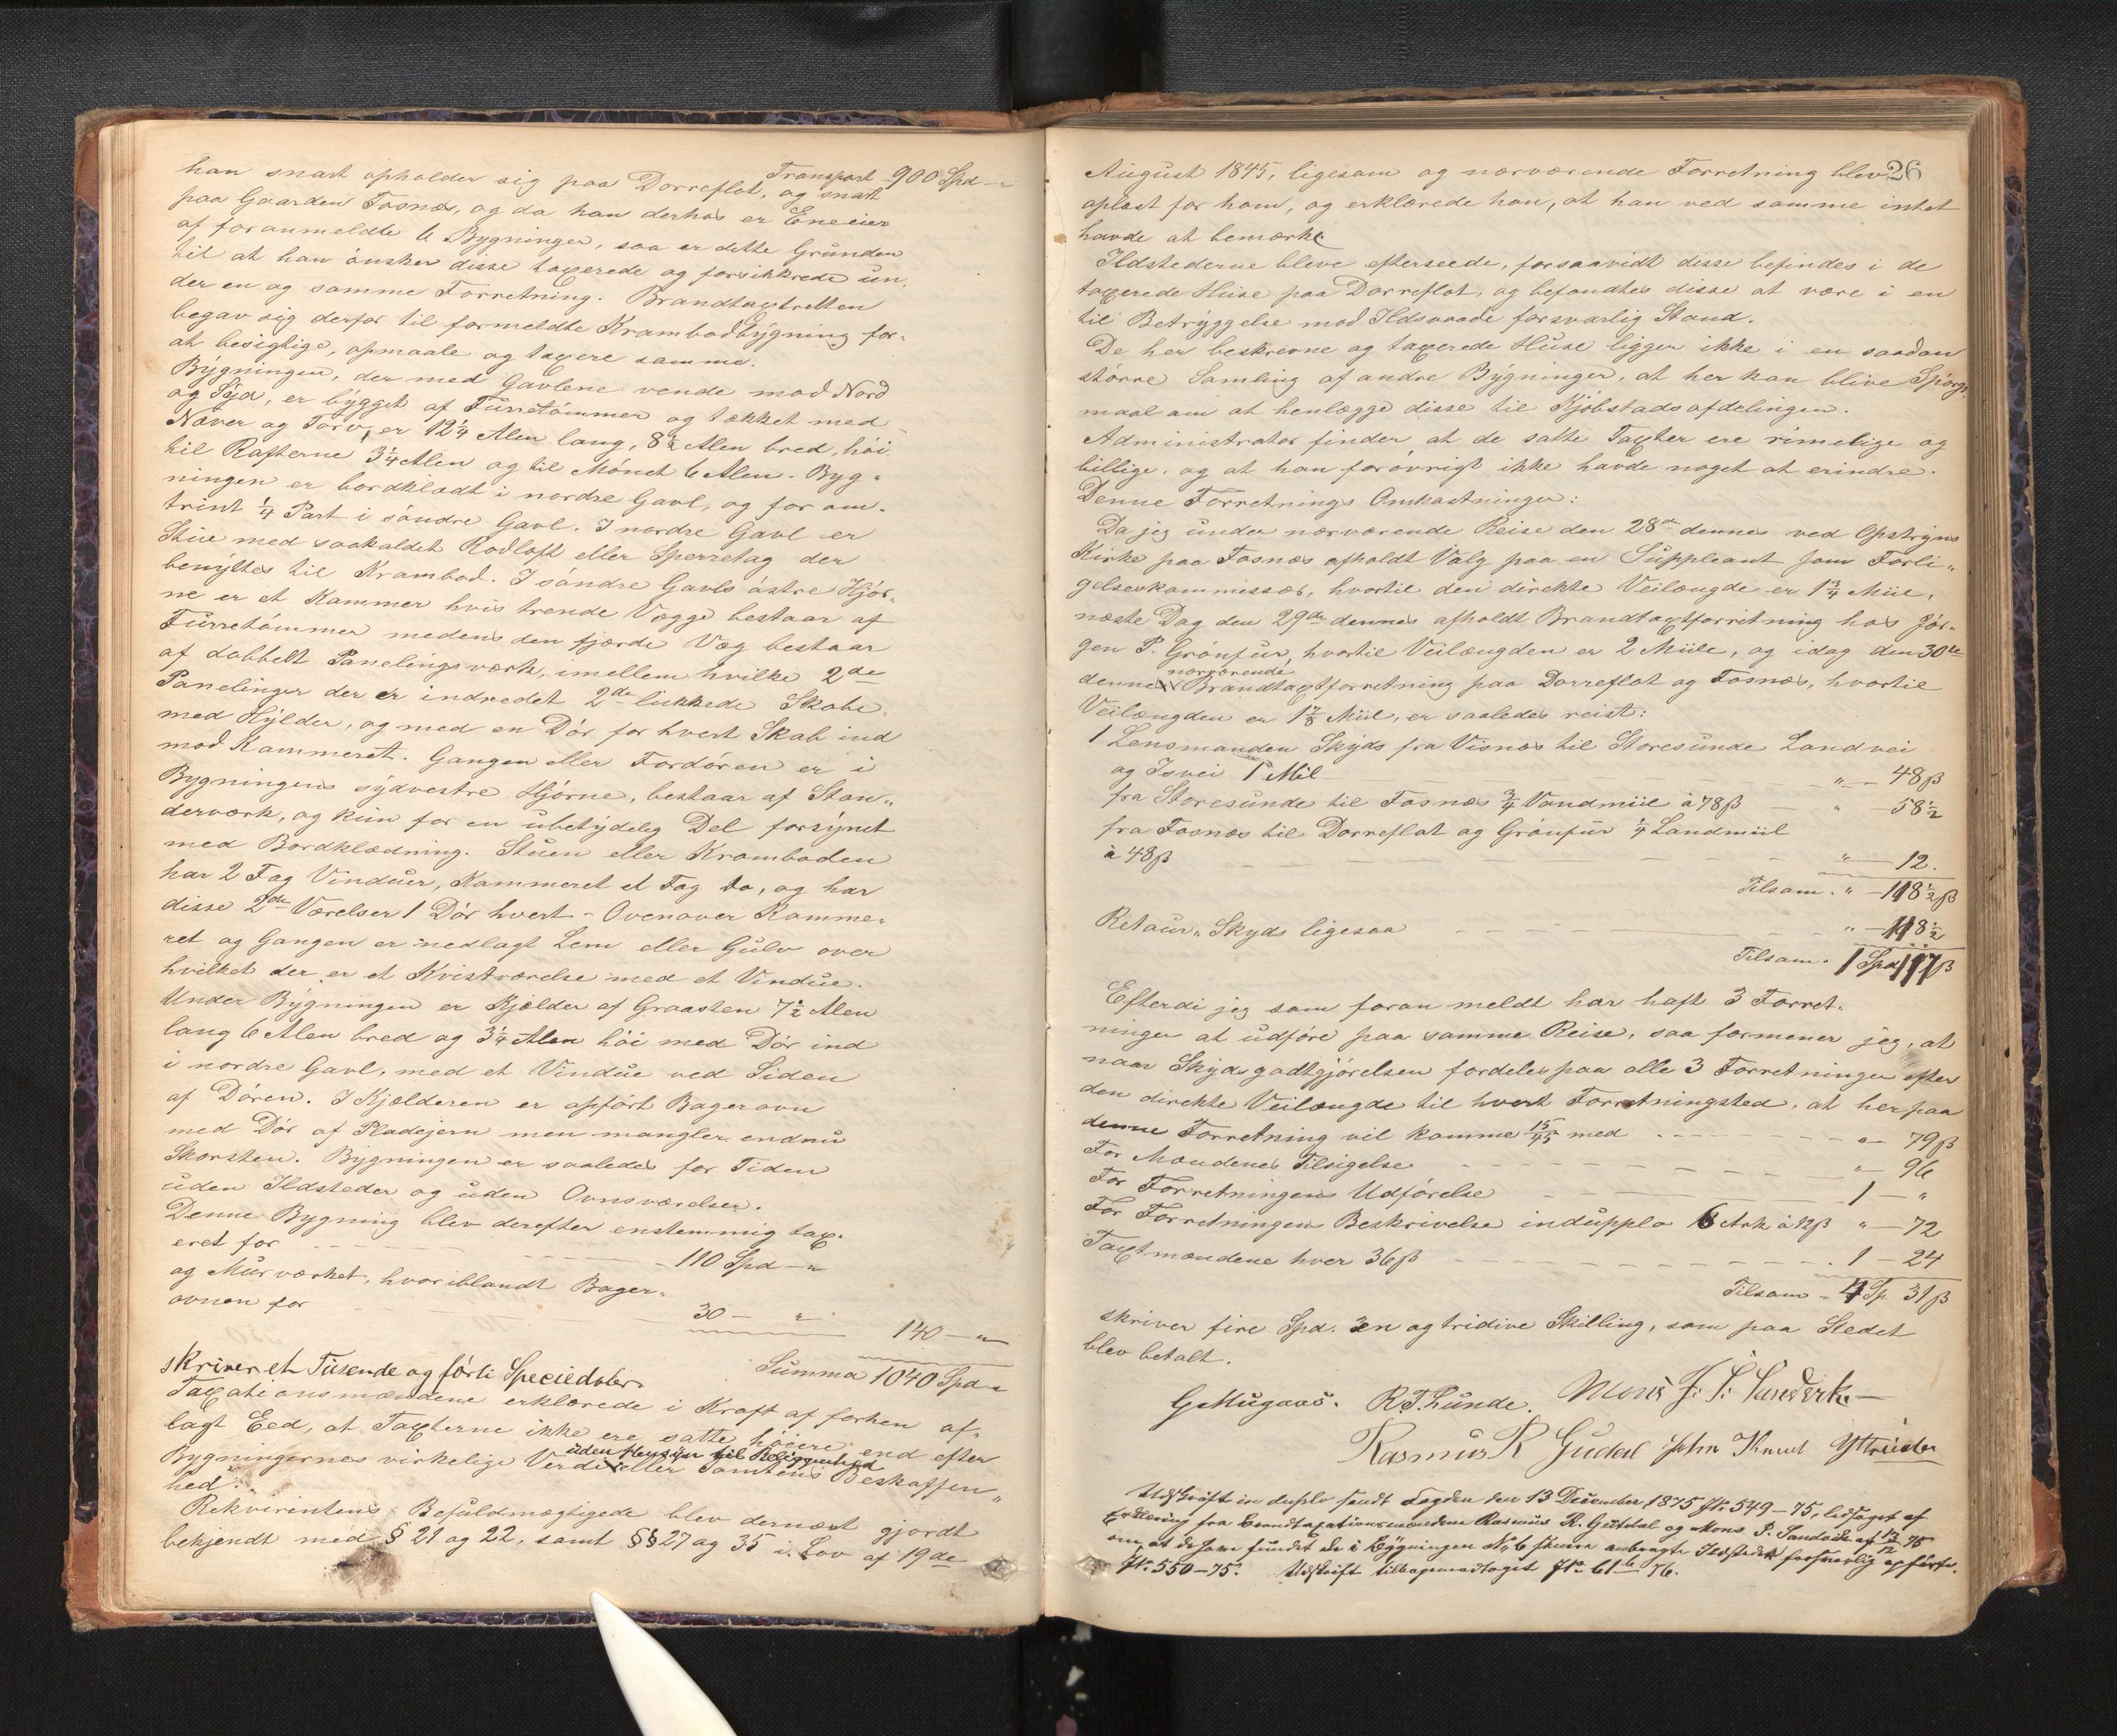 Transport 900 Spd -"
han snart opholder sig paa Dorreflot, og snart
paa Gaarden Fosnæs, og da han derhos er Eneeier
af foranmeldte 6 Bygninger, saa er dette Grunden
til at han ønsker disse taxerede og forsikkrede un-
der en og samme Forretning. Brandtaxtretten
begav sig derfor til formeldte Krambodbygning for-
at besigtige, opmaale og taxere samme.
Bygningen, der med Gavlene vende mod Nord
og Syd, er bygget af Furretømmer og tækket med
Næver og Torv, er 12 1/4 Alen lang, 8 1/2 Alen bred, høi
til Rafterne 3 1/4 Alen og til Mønet 6 Alen. Byg-
ningen er bordklædt i nordre Gavl, og for om-
trint 1/4 Part i søndre Gavl. I nordre Gavl er
Stue med saakaldet Rodloft eller Sperretag der
benyttes til Krambod. I søndre Gavls østre Hjør-
ne er et Kammer hvis trende Vægge bestaar af
Furretømmer medens den fjærde Væg bestaar
af dobbelt Panelingsværk, imellem hvilke 2de
Panelinger der er indredet 2de lukkede Skabe
med Hylder, og med en Dør for hvert Skab ind
mod Kammeret. Gangen eller Fordøren er i
Bygningens sydvestre Hjørne, bestaar af Stan-
derværk, og kun for en ubetydelig Del forsynet
med Bordklædning. Stuen eller Kramboden
har 2 Fag Vinduer, Kammeret et Fag do, og har
disse 2de Værelser 1 Dør hvert - Ovenover Kamme-
ret og Gangen er nedlagt Lem eller Gulv over
hvilket der er et Kvistværelse med et Vindue.
Under Bygningen er Kjælder af Graasten 7 1/2 Alen
lang 6 Alen bred og 3 1/4 Alen høi med Dør ind
i nordre Gavl, med et Vindue ved Siden
af Døren. I Kjælderen er opført Bagerovn
med Dør af Pladejern men mangler endnu
Skorsten. Bygningen er saaledes for Tiden
uden Ildsteder og uden Ovnsværelser.
Denne Bygning blev derefter enstemmig tax-
eret for 110 Spd - "
og Murværket, hvoriblandt Bager-
ovnen for 30 - " 140 - "
Summa 1040 Spd "
skriver et Tusende og førti Speciedaler.
Taxationsmændene erklærede i Kraft af forhen af-
lagt Eed, at Taxterne ikke ere satte høiere end efter
uden Hensyn til Beliggenhed
Bygningernes virkelige Verdi eller Tomtens Beskaffen-
hed.
Rekvirentens Befuldmægtigede blev dernæst gjordt
bekjendt med § 21 og 22, samt §§ 27 og 35 i Lov af 19de
26
August 1845, ligesom og nærværende Forretning blev
oplæst for ham, og erklærede han, at han ved samme intet
havde at bemærke
Ildstederne bleve efterseede, forsaavidt disse befindes i de
taxerede Huse paa Dorreflot, og befandtes disse at være i en
til Betryggelse mod Ildsvaade forsvarlig Stand.
De her beskrevne og taxerede Huse ligger ikke i en saadan
større Samling af andre Bygninger, at her kan blive Spørgs-
maal om at henlægge disse til Kjøbstadsafdelingen.
Administrator finder at de satte Taxter ere rimelige og
billige, og at han forøvrigt ikke havde noget at erindre.
Denne Forretnings Omkostninger:
Da jeg under nærværende Reise den 28de dennes ved Opstryns
Kirke paa Fosnæs afholdt Valg paa en Suppleant som Forli-
gelseskommissær, hvortil den direkte Veilængde er 1 3/4 Miil,
næste Dag den 29de dennes afholdt Brandtaxtforretning hos Jør-
gen P. Grønfur, hvortil Veilængden er 2 Miile, og idag den 30te
nærværende
dennes Brandtaxtforretning paa Dorreflot og Fosnæs, hvortil
Veilængden er 1 7/8 Miil, er saaledes reist:
1 Lensmanden Skyds fra Visnæs til Storesunde Landvei
og Isvei 1 Mil " - 48 ß
fra Storesunde til Fosnæs 3/4 Vandmiil à 78 ß " - 58 1/2
fra Fosnæs til Dorreflot og Grønfur 1/4 Landmiil
à 48 ß " - 12.
Tilsam. " - 118 1/2 ß
Retour-Skyds ligesaa " - 118 1/2
Tilsam. 1 Spd 117 ß
Efterdi jeg som foran meldt har haft 3 Forret-
ninger at udføre paa samme Reise, saa formener jeg, at
naar Skydsgodtgjørelsen fordeles paa alle 3 Forretninger efter
den direkte Veilængde til hvert Forretningsted, at her paa
denne Forretning vil komme 15/45 med " - 79 ß
For Mændenes Tilsigelse " - 96
For Forretningens Udførelse 1 - "
For Forretningens Beskrivelse indupplo 6 Ark à 12 ß " - 72
Taxtmændene hver 36 ß 1 - 24
Tilsam - 4 Sp 31 ß
skriver fire Spd. en og tridive Skilling, som paa Stedet
blev betalt.
G Mugaas. R. T. Lunde. Mons J. P. Sandvik
Rasmus R Gudal John Knud Yttreeide
Udskrift in duplo sendt Fogden den 13 December 1875 Jr. 549-75, ledsaget af
Erklæring fra Brandtaxationsmændene Rasmus R. Gutdal og Mons P. Sandvik af 12/12 75
om at de have fundet de i Bygningen No 6 senere anbragte Ildsteder forsvarlig opførte.
Jr. 550-75. Udskrift tilbagemodtaget Jr. 61 b 76.